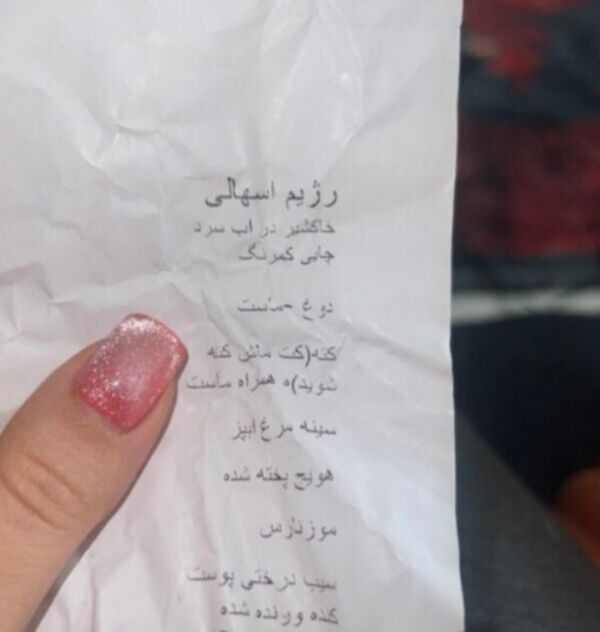 رژیم اسهالی
خاکشیر در اب سرد
چایی کمرنگ
دوغ -ماست
کته(کت ماش کته
شوید)ه همراه ماست
سینه مرغ ابپز
هویج پخته شده
موزنارس
سیب درختی پوست
کنده ورنده شده